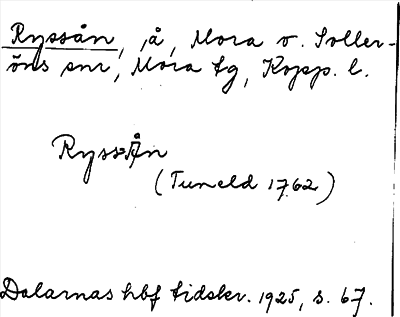 Ryssån, å, Mora o. Soller-
öns snr, Mora tg, Kopp. l.
RyssÅn
(Tuneld 1762)
Dalarnas hbf tidskr. 1925, s. 67.